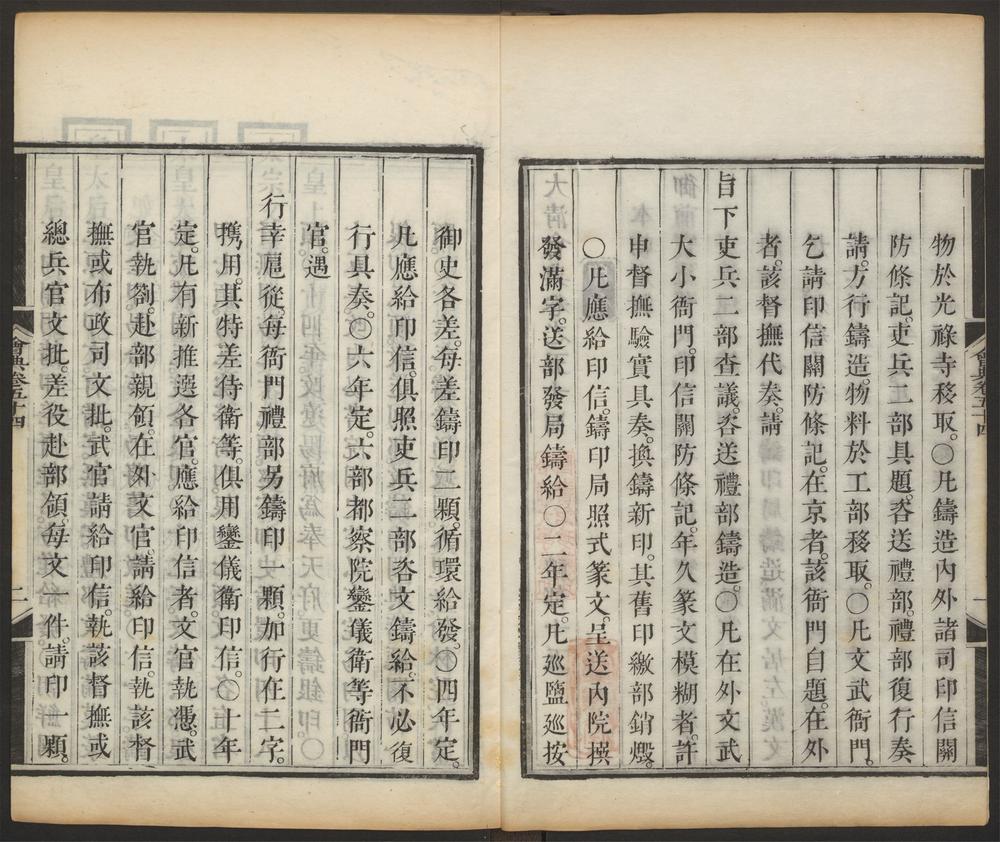 物於光祿寺移取。○凡鑄造內外諸司印信關
防條記。吏兵工部具題。咨送禮部。禮部復行奏
請。方行鑄造。物料於工部移取。○凡文武衙門。
乞請印信關防條記。在京者。該衙門自題。在外
者。該督撫代奏。請
旨下吏兵二部查議。咨送禮部鑄造。○凡在外文武
大小衙門。印信關防條記。年久篆文模糊者。許
申督撫驗實具奏。換鑄新印。其舊印繳部銷燬。
○凡應給印信。鑄印局照式篆文。呈送內院撰
發滿字。送部發局鑄給。○二年定。凡巡鹽巡按
會典卷五十四
一
御史各差。每差鑄印二顆。循環給發。○四年定。
凡應給印信。俱照吏兵二部咨文鑄給。不必復
行具奏。○六年定。六部都察院鑾儀衛等衙門
官。遇
行幸扈從。每衙門禮部另鑄印一顆。加行在二字。
携用。其特差侍衛等。俱用鑾儀衛印信。○十年
定。凡有新推選各官。應給印信者。文官執憑。武
官執劄。赴部親領。在外文官。請給印信。執該督
撫或布政司文批。武官請給印信。執該督撫或
總兵官文批。差役赴部領。每文一件。請印一顆。
會典卷五十四
二